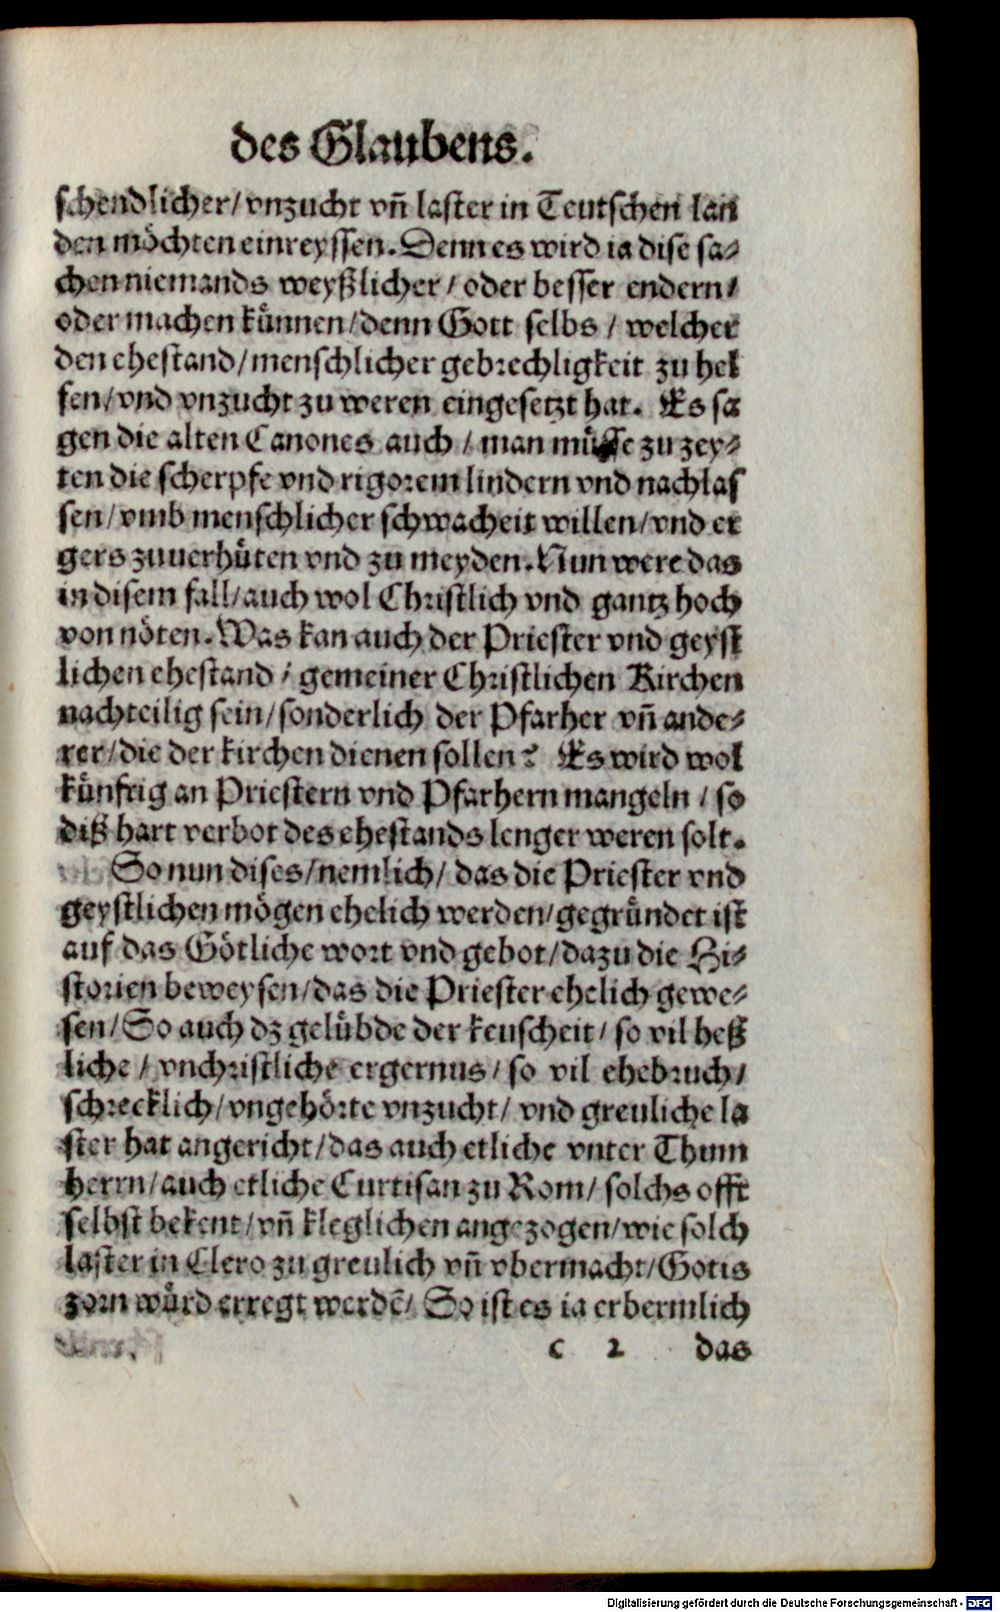 des Glaubens.
schendlicher/ vnzucht vñ laster in Teutschen lan
den möchten einreyssen. Denn es wird ia dise sa-
chen niemands weyßlicher/ oder besser endern/
oder machen künnen/ denn Gott selbs/ welcher
den ehestand/ menschlicher gebrechligkeit zu hel
fen/ vnd vnzucht zu weren eingesetzt hat. Es sa
gen die alten Canones auch/ man müsse zu zey-
ten die scherpfe vnd rigorem lindern vnd nachlas
sen/ vmb menschlicher schwacheit willen/ vnd er
gers zuuerhüten vnd zu meyden. Nun were das
in disem fall/ auch wol Christlich vnd gantz hoch
von nöten. Was kan auch der Priester vnd geyst
lichen ehestand/ gemeiner Christlichen Kirchen
nachteilig sein/ sonderlich der Pfarher vñ ande-
rer/ die der kirchen dienen sollen? Es wird wol
künftig an Priestern vnd Pfarhern mangeln/ so
diß hart verbot des ehestands lenger weren solt.
So nun dises/ nemlich/ das die Priester vnd
geystlichen mögen ehelich werden/ gegründet ist
auf das Götliche wort vnd gebot/ dazu die Hi-
storien beweysen/ das die Priester ehelich gewe-
sen/ So auch dz gelübde der keuscheit/ so vil heß
liche/ vnchristliche ergernus/ so vil ehebruch/
schrecklich/ vngehörte vnzucht/ vnd greuliche la
ster hat angericht/ das auch etliche vnter Thum
herrn/ auch etliche Curtisan zu Rom/ solchs offt
selbst bekent/ vñ kleglichen angezogen/ wie solch
laster in Clero zu greulich vñ vbermacht/ Gotis
zorn würd erregt werdē/ So ist es ia erbermlich
c 2 das
Digitalisierung gefördert durch die Deutsche Forschungsgemeinschaft - DFG